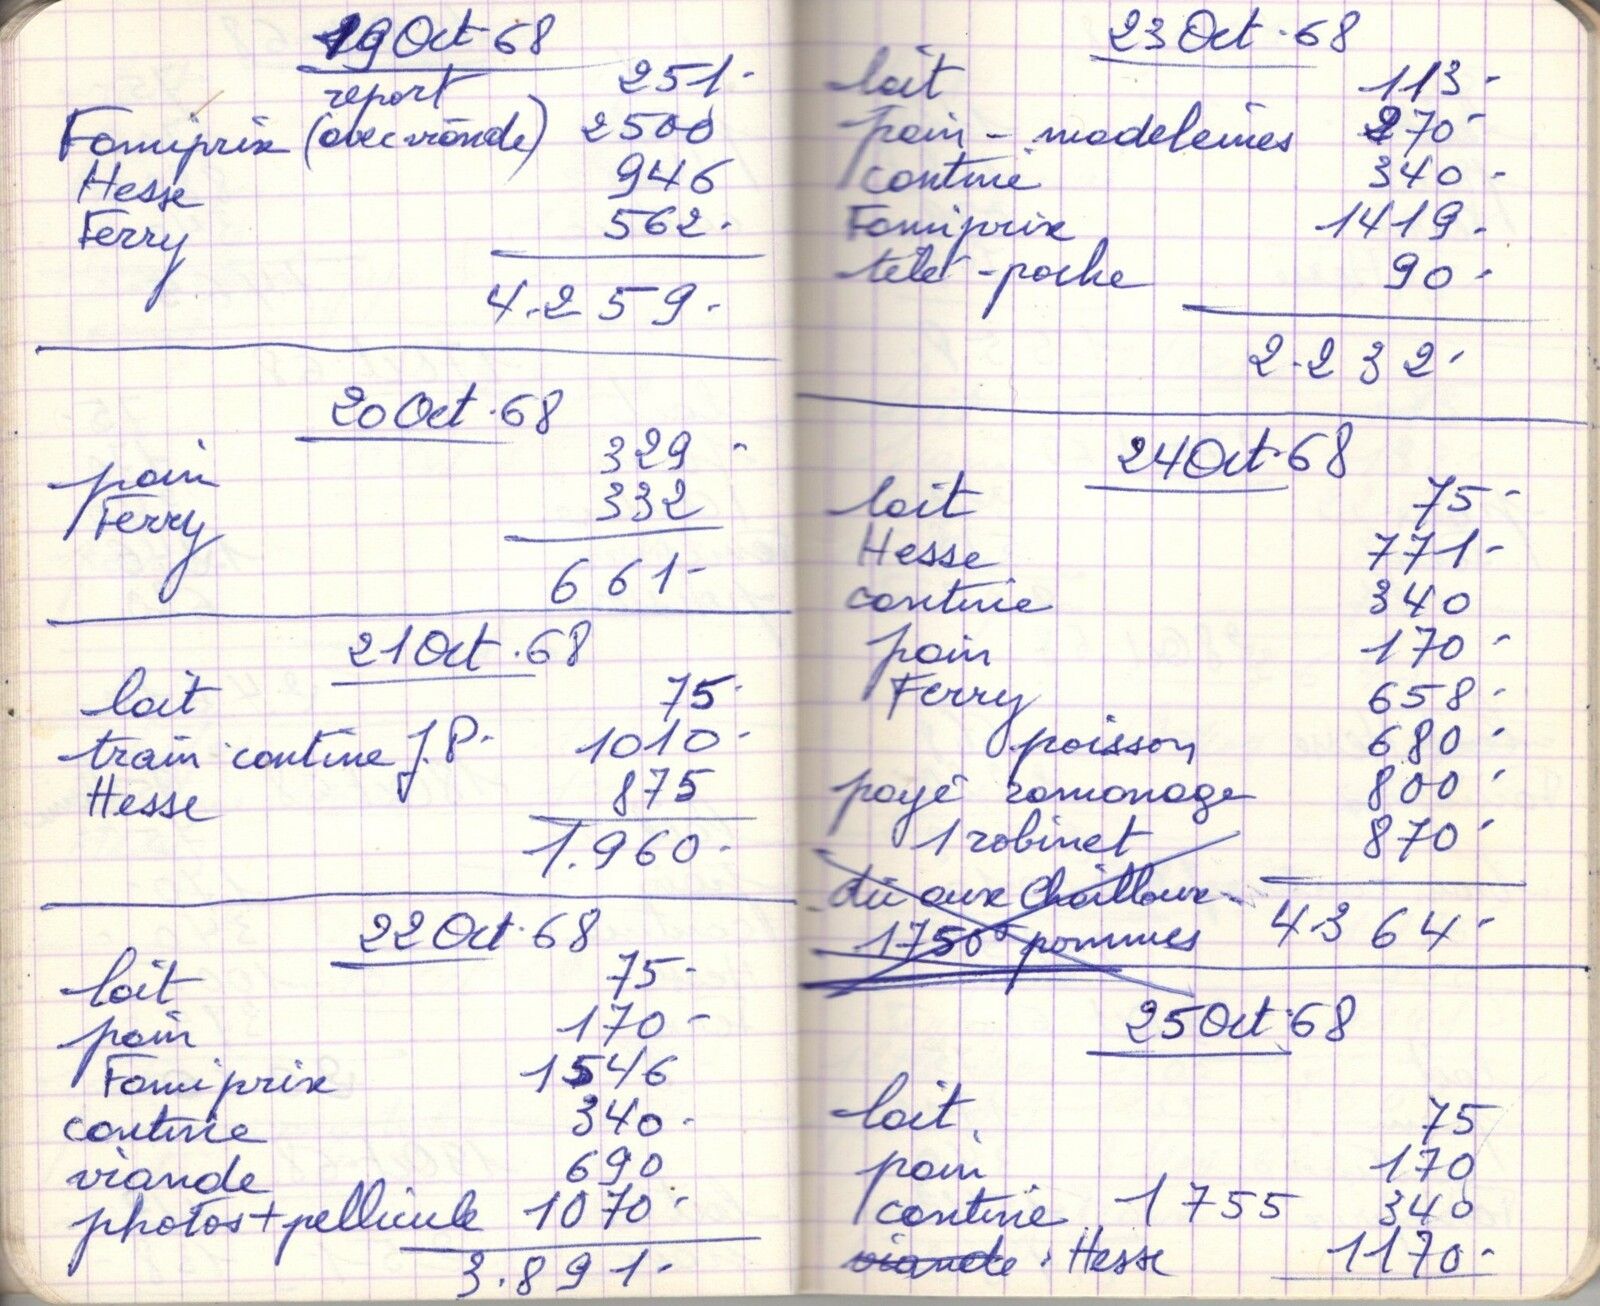 19 Oct. 68
report 251.-
Famiprix (avec viande) 2500
Hesse 946
Ferry 562.
4.259.
20 Oct. 68
pain 329 -
Ferry 332
661-
21 Oct. 68
lait 75.
train cantine J.P. 1010-
Hesse 875
1.960.
22 Oct. 68
lait 75-
pain 170-
Famiprix 1546
cantine 340.
viande 690
photos + pellicule 1070.
3.891.
23 Oct. 68
lait 113-
pain - madeleines 270-
cantine 340-
Famiprix 1419.
télé-poche 90-
2.232.
24 Oct. 68
lait 75-
Hesse 771-
cantine 340
pain 170-
Ferry 658-
poisson 680-
payé ramonage 800-
1 robinet 870-
dû aux Chailloux
1750 pommes 4364-
25 Oct. 68
lait. 75
pain 170
cantine 1755 340
viande. Hesse 1170-